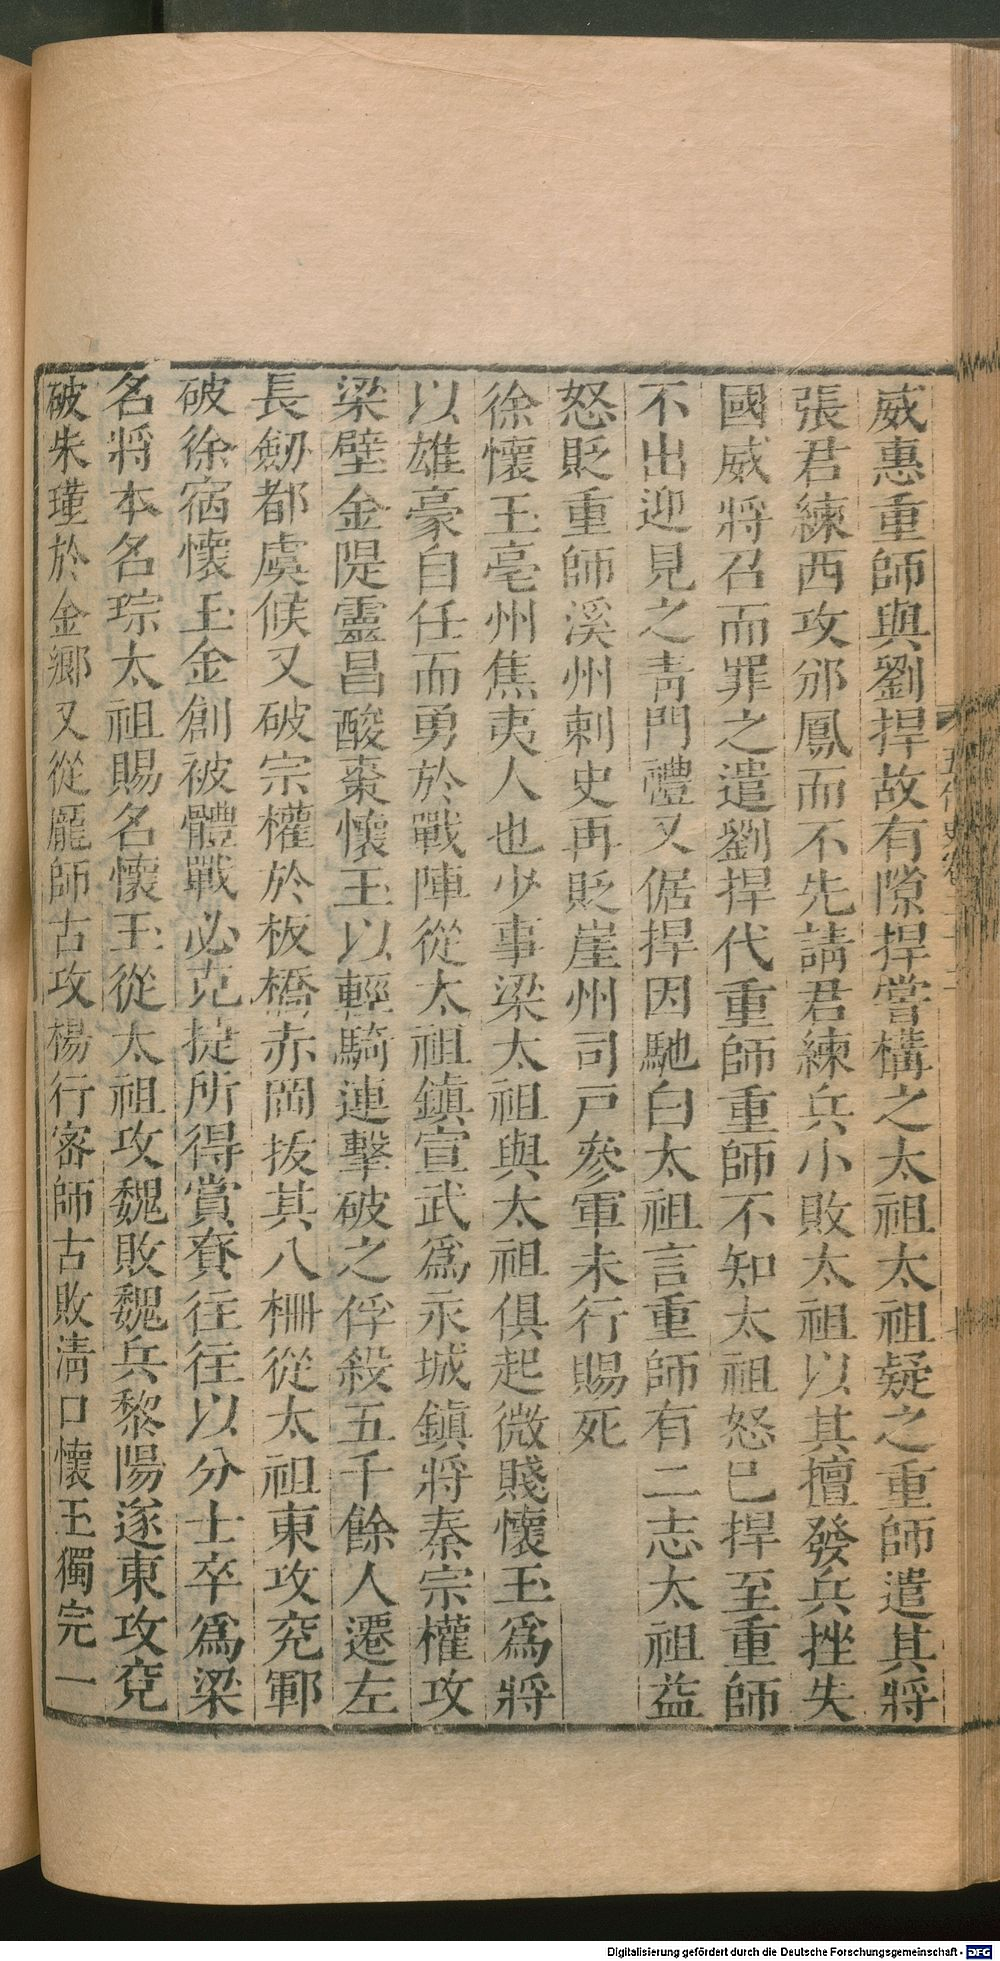 威惠重師與劉捍故有隙捍嘗構之太祖太祖疑之重師遣其將
張君練西攻邠鳳而不先請君練兵小敗太祖以其擅發兵挫失
國威將召而罪之遣劉捍代重師重師不知太祖怒已捍至重師
不出迎見之青門禮又倨捍因馳白太祖言重師有二志太祖益
怒貶重師溪州刺史再貶崖州司戸參軍未行賜死
徐懷玉亳州焦夷人也少事梁太祖與太祖俱起微賤懷玉爲將
以雄豪自任而勇於戰陣從太祖鎮宣武爲永城鎮將秦宗權攻
梁壁金隄靈昌酸棗懷玉以輕騎連擊破之俘殺五千餘人遷左
長劔都虞候又破宗權於板橋赤岡拔其八柵從太祖東攻兖鄆
破徐宿懷玉金創被體戰必克捷所得賞賚往往以分士卒爲梁
名將本名琮太祖賜名懷玉從太祖攻魏敗魏兵黎陽遂東攻兖
破朱瑾於金鄉又從龐師古攻楊行密師古敗清口懷玉獨完一
五代史卷二十二
Digitalisierung gefördert durch die Deutsche Forschungsgemeinschaft - DFG